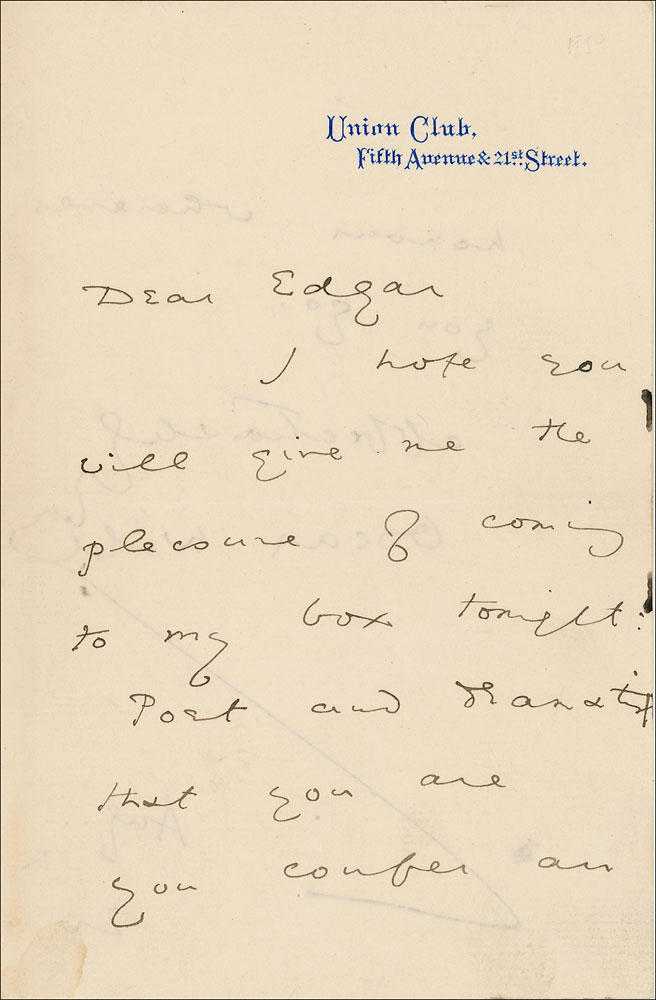 Union Club,
Fifth Avenue & 21st. Street.
Dear Edgar
I hope you
will give me the
pleasure of coming
to my box tonight:
Poet and dramatist
that you are
you confer an